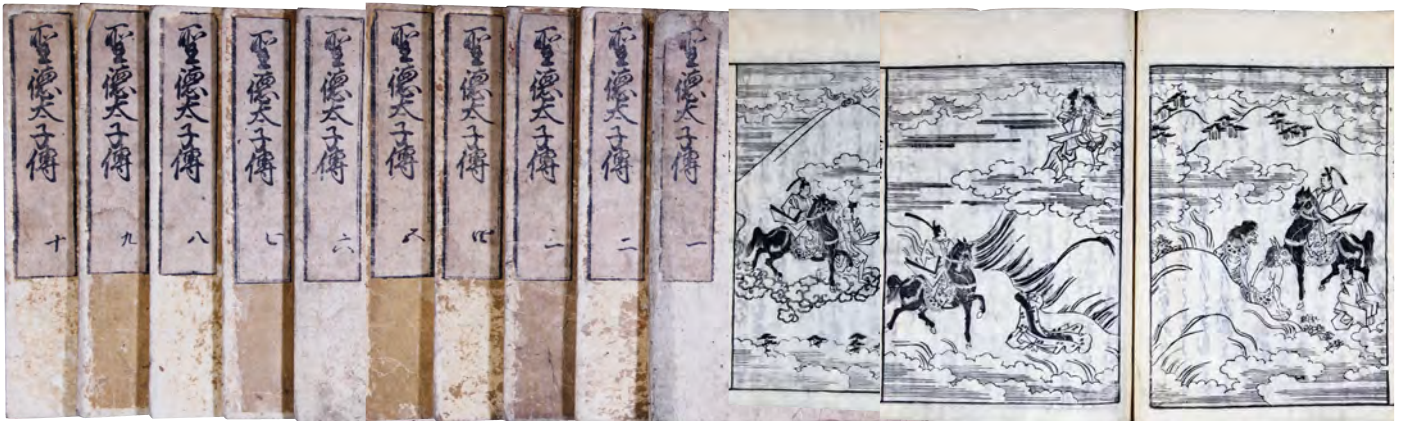 聖德太子傳 一
聖德太子傳 二
聖德太子傳 三
聖德太子傳 四
聖德太子傳 五
聖德太子傳 六
聖德太子傳 七
聖德太子傳 八
聖德太子傳 九
聖德太子傳 十